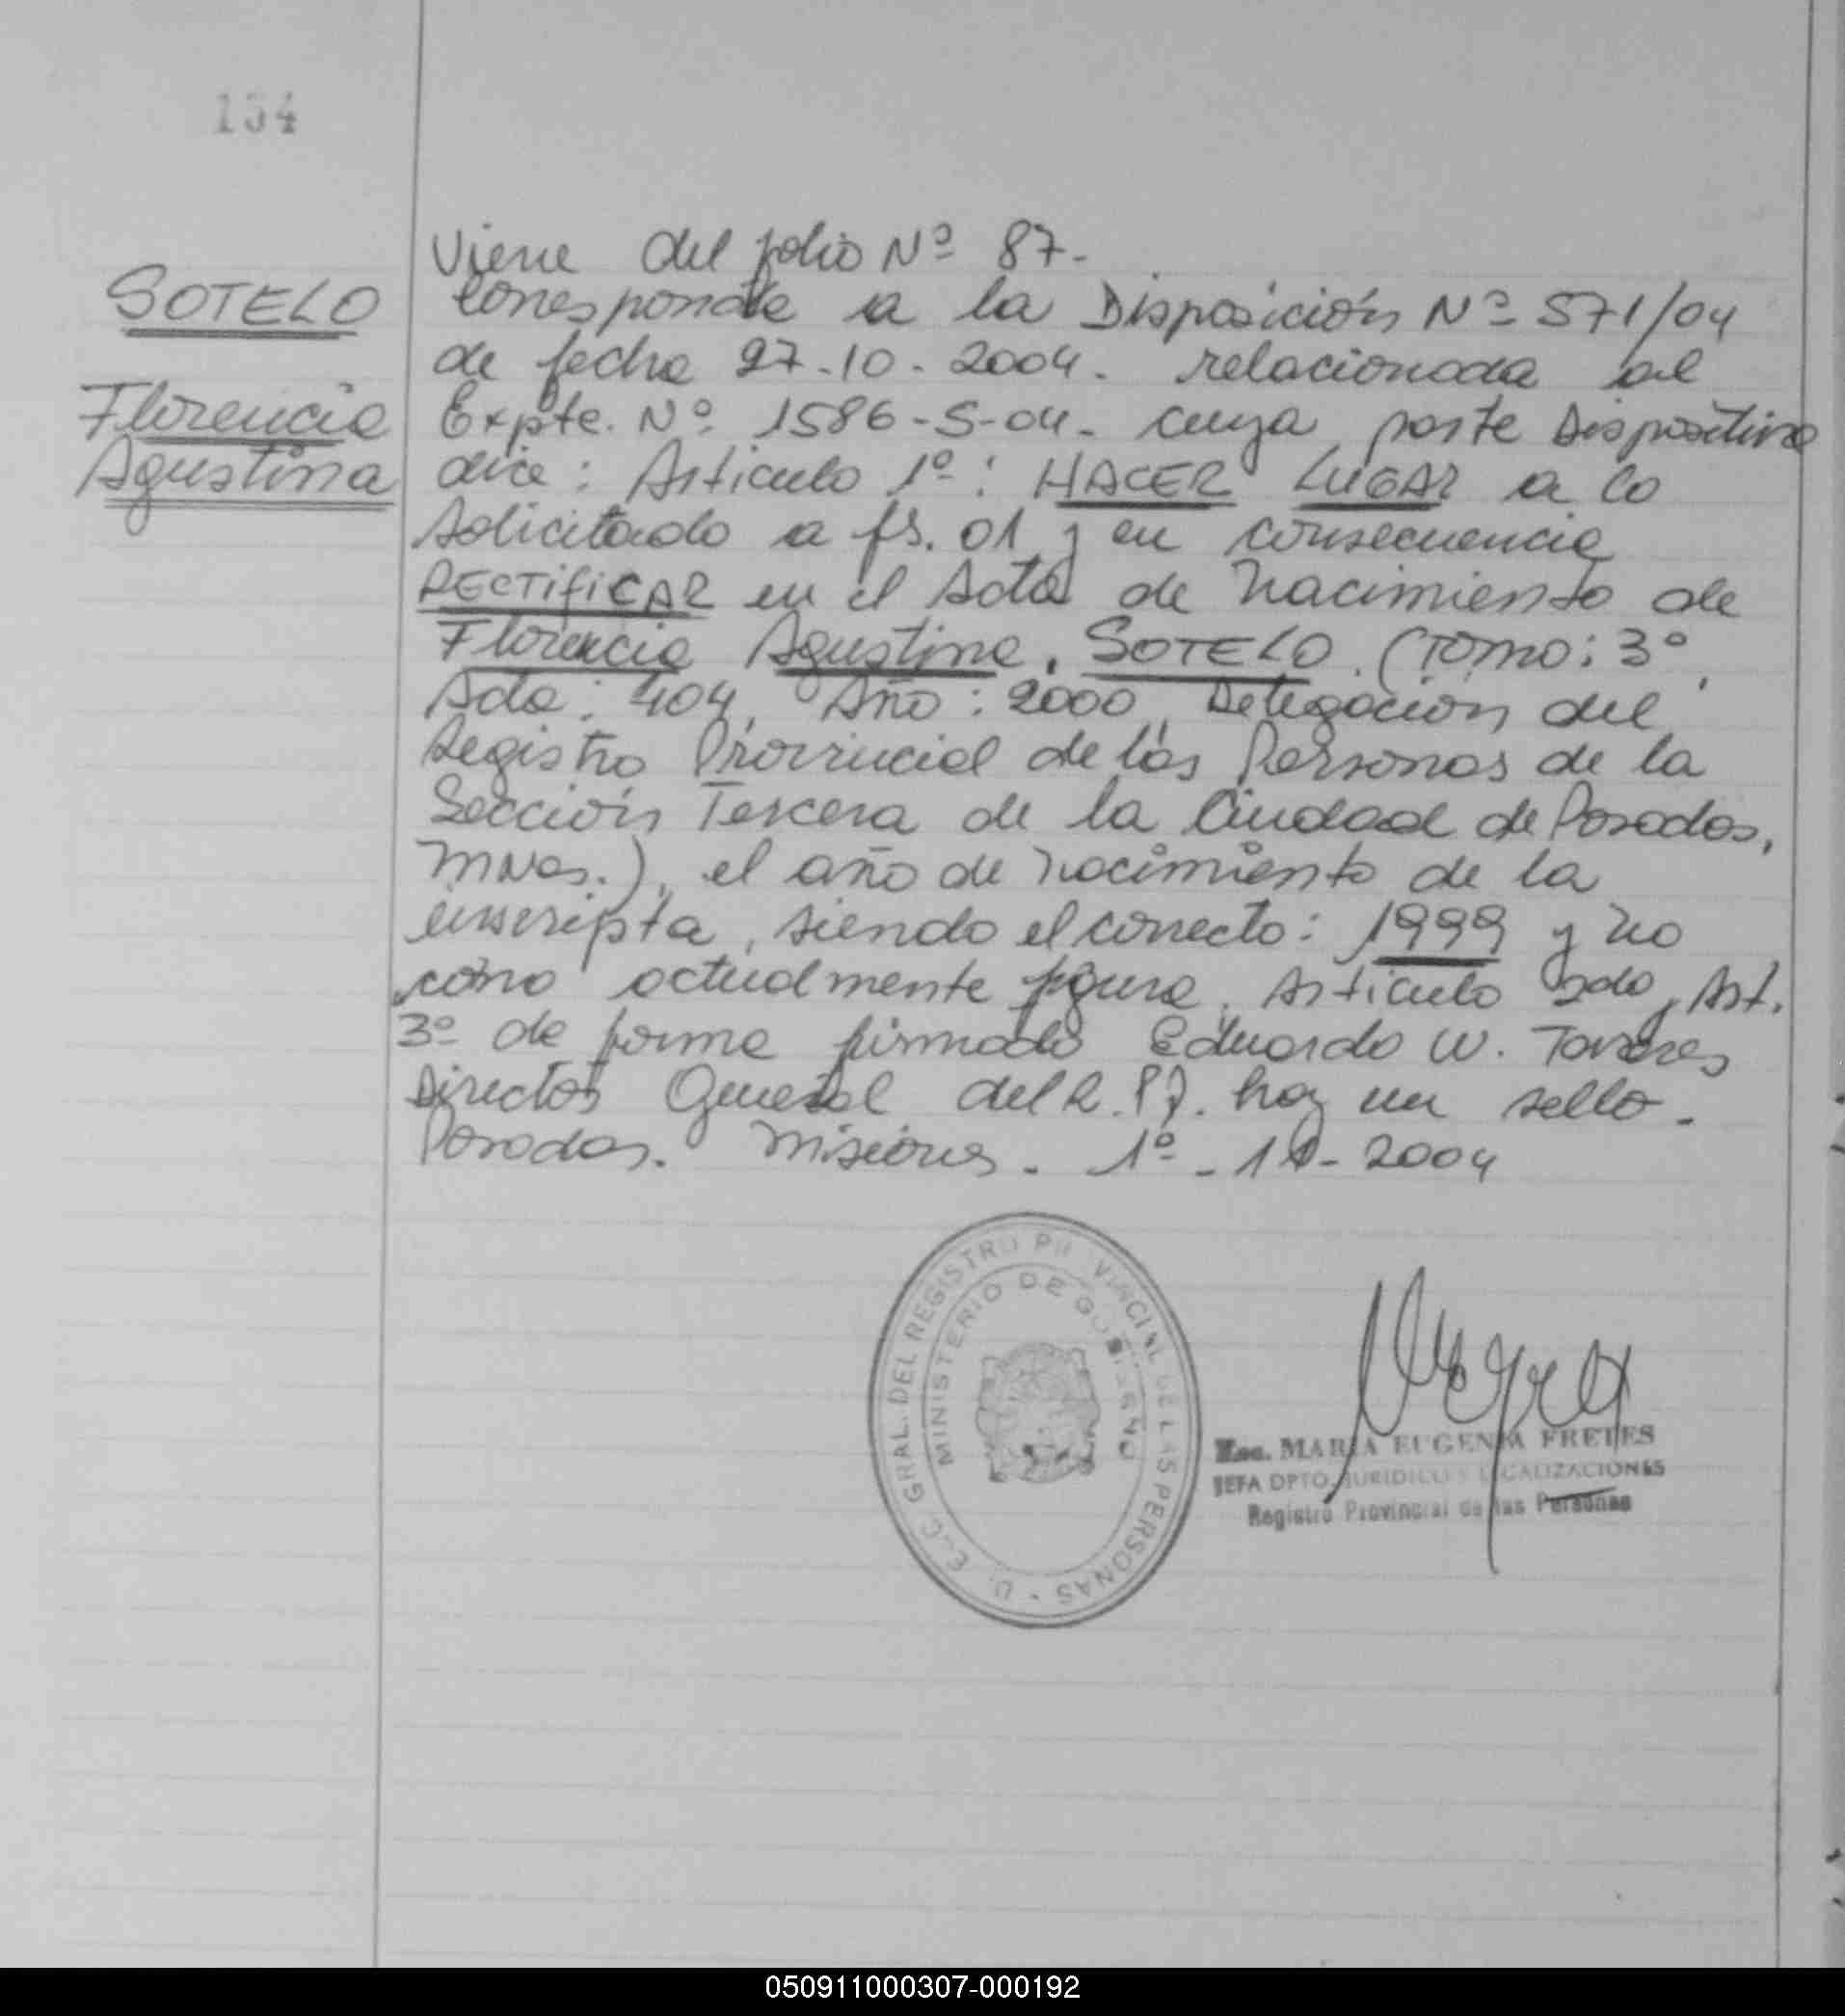 134
Viene del folio Nº 87-
SOTELO
Corresponde a la Disposición Nº 571/04
de fecha 27-10-2004. relacionada al
Florencia
Expte. Nº 1586-S-04- cuya parte Dispositiva
Agustina
dice: Articulo 1º: HACER LUGAR a lo
solicitado a fs. 01 y en consecuencia
RECTIFICAR en el Acta de Nacimiento de
Florencia Agustina, SOTELO. (Tomo: 3º,
Acta: 404, Año: 2000, Delegación del
Registro Provincial de las Personas de la
Sección Tercera de la Ciudad de Posadas,
Mnes.), el año de nacimiento de la
inscripta, siendo el correcto: 1999 y no
como actualmente figura. Articulo 2do y Art.
3º de forma firmado Eduardo W. Tavares
Director General del R.P.P. hay un sello-
Posadas. Misiones. 1º-11-2004
GRAL. DEL REGISTRO PROVINCIAL DE LAS PERSONAS
MINISTERIO DE GOBIERNO
Esc. MARIA EUGENIA FRETES
JEFA DPTO. JURIDICO Y LEGALIZACIONES
Registro Provincial de las Personas
050911000307-000192